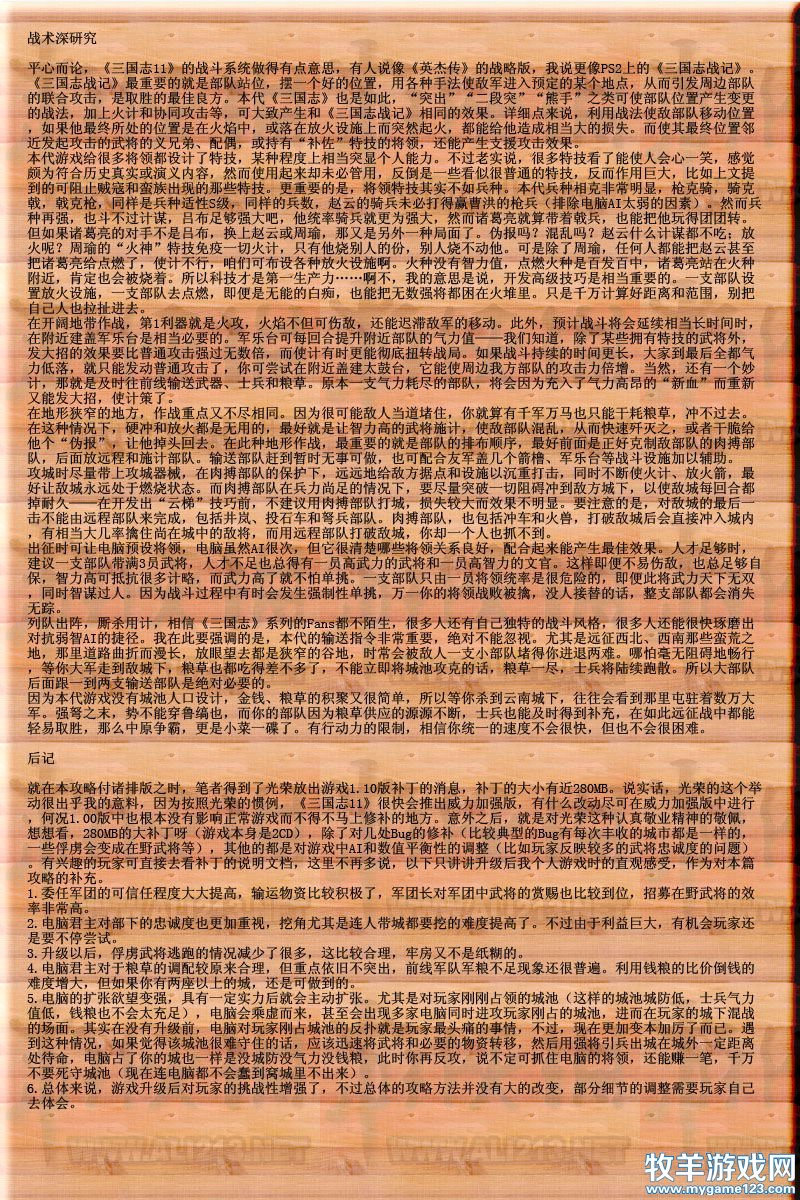 战术深研究
平心而论，《三国志11》的战斗系统做得有点意思，有人说像《英杰传》的战略版，我说更像PS2上的《三国志战记》。
《三国志战记》最重要的就是部队站位，摆一个好的位置，用各种手法使敌军进入预定的某个地点，从而引发周边部队
的联合攻击，是取胜的最佳良方。本代《三国志》也是如此，“突出”“二段突”“熊手”之类可使部队位置产生变更
的战法，加上火计和协同攻击等，可大致产生和《三国志战记》相同的效果。详细点来说，利用战法使敌部队移动位置
，如果他最终所处的位置是在火焰中，或落在放火设施上而突然起火，都能给他造成相当大的损失。而使其最终位置邻
近发起攻击的武将的义兄弟、配偶，或持有“补佐”特技的将领，还能产生支援攻击效果。
本代游戏给很多将领都设计了特技，某种程度上相当突显个人能力。不过老实说，很多特技看了能使人会心一笑，感觉
颇为符合历史真实或演义内容，然而使用起来却未必管用，反倒是一些看似很普通的特技，反而作用巨大，比如上文提
到的可阻止贼寇和蛮族出现的那些特技。更重要的是，将领特技其实不如兵种。本代兵种相克非常明显，枪克骑，骑克
戟，戟克枪，同样是兵种适性S级，同样的兵数，赵云的骑兵未必打得赢曹洪的枪兵（排除电脑AI太弱的因素）。然而兵
种再强，也斗不过计谋，吕布足够强大吧，他统率骑兵就更为强大，然而诸葛亮就算带着戟兵，也能把他玩得团团转。
但如果诸葛亮的对手不是吕布，换上赵云或周瑜，那又是另外一种局面了。伪报吗？混乱吗？赵云什么计谋都不吃；放
火呢？周瑜的“火神”特技免疫一切火计，只有他烧别人的份，别人烧不动他。可是除了周瑜，任何人都能把赵云甚至
把诸葛亮给点燃了，使计不行，咱们可布设各种放火设施啊。火种没有智力值，点燃火种是百发百中，诸葛亮站在火种
附近，肯定也会被烧着。所以科技才是第一生产力……啊不，我的意思是说，开发高级技巧是相当重要的。一支部队设
置放火设施，一支部队去点燃，即便是无能的白痴，也能把无数强将都困在火堆里。只是千万计算好距离和范围，别把
自己人也拉扯进去。
在开阔地带作战，第1利器就是火攻，火焰不但可伤敌，还能迟滞敌军的移动。此外，预计战斗将会延续相当长时间时，
在附近建盖军乐台是相当必要的。军乐台可每回合提升附近部队的气力值——我们知道，除了某些拥有特技的武将外，
发大招的效果要比普通攻击强过无数倍，而使计有时更能彻底扭转战局。如果战斗持续的时间更长，大家到最后全都气
力低落，就只能发动普通攻击了，你可尝试在附近盖建太鼓台，它能使周边我方部队的攻击力倍增。当然，还有一个妙
计，那就是及时往前线输送武器、士兵和粮草。原本一支气力耗尽的部队，将会因为充入了气力高昂的“新血”而重新
又能发大招，使计策了。
在地形狭窄的地方，作战重点又不尽相同。因为很可能敌人当道堵住，你就算有千军万马也只能干耗粮草，冲不过去。
在这种情况下，硬冲和放火都是无用的，最好就是让智力高的武将施计，使敌部队混乱，从而快速歼灭之，或者干脆给
他个“伪报”，让他掉头回去。在此种地形作战，最重要的就是部队的排布顺序，最好前面是正好克制敌部队的肉搏部
队，后面放远程和施计部队。输送部队赶到暂时无事可做，也可配合友军盖几个箭橹、军乐台等战斗设施加以辅助。
攻城时尽量带上攻城器械，在肉搏部队的保护下，远远地给敌方据点和设施以沉重打击，同时不断使火计、放火箭，最
好让敌城永远处于燃烧状态。而肉搏部队在兵力尚足的情况下，要尽量突破一切阻碍冲到敌方城下，以使敌城每回合都
掉耐久——在开发出“云梯”技巧前，不建议用肉搏部队打城，损失较大而效果不明显。要注意的是，对敌城的最后一
击不能由远程部队来完成，包括井岚、投石车和弩兵部队。肉搏部队，也包括冲车和火兽，打破敌城后会直接冲入城内
，有相当大几率擒住尚在城中的敌将，而用远程部队打破敌城，你却一个人也抓不到。
出征时可让电脑预设将领，电脑虽然AI很次，但它很清楚哪些将领关系良好，配合起来能产生最佳效果。人才足够时，
建议一支部队带满3员武将，人才不足也总得有一员高武力的武将和一员高智力的文官。这样即便不易伤敌，也总足够自
保，智力高可抵抗很多计略，而武力高了就不怕单挑。一支部队只由一员将领统率是很危险的，即便此将武力天下无双
，同时智谋过人。因为战斗过程中有时会发生强制性单挑，万一你的将领战败被擒，没人接替的话，整支部队都会消失
无踪。
列队出阵，厮杀用计，相信《三国志》系列的Fans都不陌生，很多人还有自己独特的战斗风格，很多人还能很快琢磨出
对抗弱智AI的捷径。我在此要强调的是，本代的输送指令非常重要，绝对不能忽视。尤其是远征西北、西南那些蛮荒之
地，那里道路曲折而漫长，放眼望去都是狭窄的谷地，时常会被敌人一支小部队堵得你进退两难。哪怕毫无阻碍地畅行
，等你大军走到敌城下，粮草也都吃得差不多了，不能立即将城池攻克的话，粮草一尽，士兵将陆续跑散。所以大部队
后面跟一到两支输送部队是绝对必要的。
因为本代游戏没有城池人口设计，金钱、粮草的积聚又很简单，所以等你杀到云南城下，往往会看到那里屯驻着数万大
军。强弩之末，势不能穿鲁缟也，而你的部队因为粮草供应的源源不断，士兵也能及时得到补充，在如此远征战中都能
轻易取胜，那么中原争霸，更是小菜一碟了。有行动力的限制，相信你统一的速度不会很快，但也不会很困难。
后记
就在本攻略付诸排版之时，笔者得到了光荣放出游戏1.10版补丁的消息，补丁的大小有近280MB。说实话，光荣的这个举
动很出乎我的意料，因为按照光荣的惯例，《三国志11》很快会推出威力加强版，有什么改动尽可在威力加强版中进行
，何况1.00版中也根本没有影响正常游戏而不得不马上修补的地方。意外之后，就是对光荣这种认真敬业精神的敬佩，
想想看，280MB的大补丁呀（游戏本身是2CD），除了对几处Bug的修补（比较典型的Bug有每次丰收的城市都是一样的，
一些俘虏会变成在野武将等），其他的都是对游戏中AI和数值平衡性的调整（比如玩家反映较多的武将忠诚度的问题）
。有兴趣的玩家可直接去看补丁的说明文档，这里不再多说，以下只讲讲升级后我个人游戏时的直观感受，作为对本篇
攻略的补充。
1.委任军团的可信任程度大大提高，输运物资比较积极了，军团长对军团中武将的赏赐也比较到位，招募在野武将的效
率非常高。
2.电脑君主对部下的忠诚度也更加重视，挖角尤其是连人带城都要挖的难度提高了。不过由于利益巨大，有机会玩家还
是要不停尝试。
3.升级以后，俘虏武将逃跑的情况减少了很多，这比较合理，牢房又不是纸糊的。
4.电脑君主对于粮草的调配较原来合理，但重点依旧不突出，前线军队军粮不足现象还很普遍。利用钱粮的比价倒钱的
难度增大，但如果你有两座以上的城，还是可做到的。
5.电脑的扩张欲望变强，具有一定实力后就会主动扩张。尤其是对玩家刚刚占领的城池（这样的城池城防低，士兵气力
值低，钱粮也不会太充足），电脑会乘虚而来，甚至会出现多家电脑同时进攻玩家刚占的城池，进而在玩家的城下混战
的场面。其实在没有升级前，电脑对玩家刚占城池的反扑就是玩家最头痛的事情，不过，现在更加变本加厉了而已。遇
到这种情况，如果觉得该城池很难守住的话，应该迅速将武将和必要的物资转移，然后用强将引兵出城在城外一定距离
处待命，电脑占了你的城也一样是没城防没气力没钱粮，此时你再反攻，说不定可抓住电脑的将领，还能赚一笔，千万
不要死守城池（现在连电脑都不会蠢到窝城里不出来）。
6.总体来说，游戏升级后对玩家的挑战性增强了，不过总体的攻略方法并没有大的改变，部分细节的调整需要玩家自己
去体会。
WWW.ALI213.NET
牧羊游戏网
www.mygame123.com